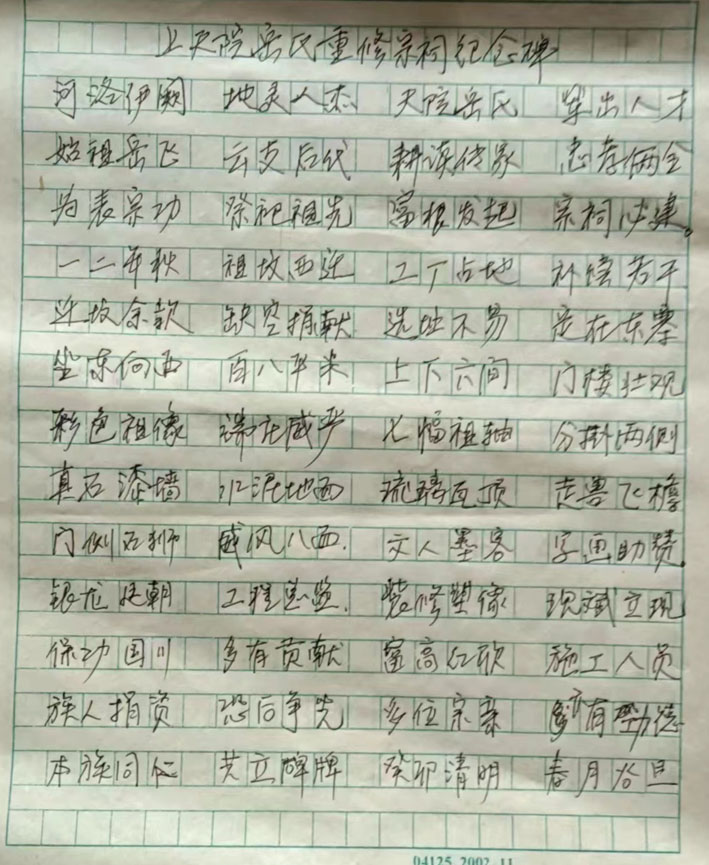 上天院岳氏重修宗祠纪念碑
河洛伊阙 地灵人杰 天院岳氏 辈出人才
始祖岳飞 云支后代 耕读传家 忠孝俩全
为表宗功 祭祀祖先 富根发起 宗祠必建。
一二年秋 祖坟西迁 工厂占地 补偿若干
迁坟余款 缺空捐献 选址不易 定在东寨
坐东向西 百八平米 上下六间 门楼壮观
彩色祖像 端庄威严 七幅祖轴 分掛两侧
真石漆墙 水泥地面 琉璃瓦顶 走兽飞檐
门侧石狮 威风八面. 文人墨客 字画助赞.
银龙 朝 工程总监. 装修塑像 现斌立现
保功国川 多有贡献 富高红欣 施工人员
族人捐资 恐后争先 多位宗亲 亦有功德
本族同仁 共立碑牌 癸卯清明 春月谷旦
04125 2002.11